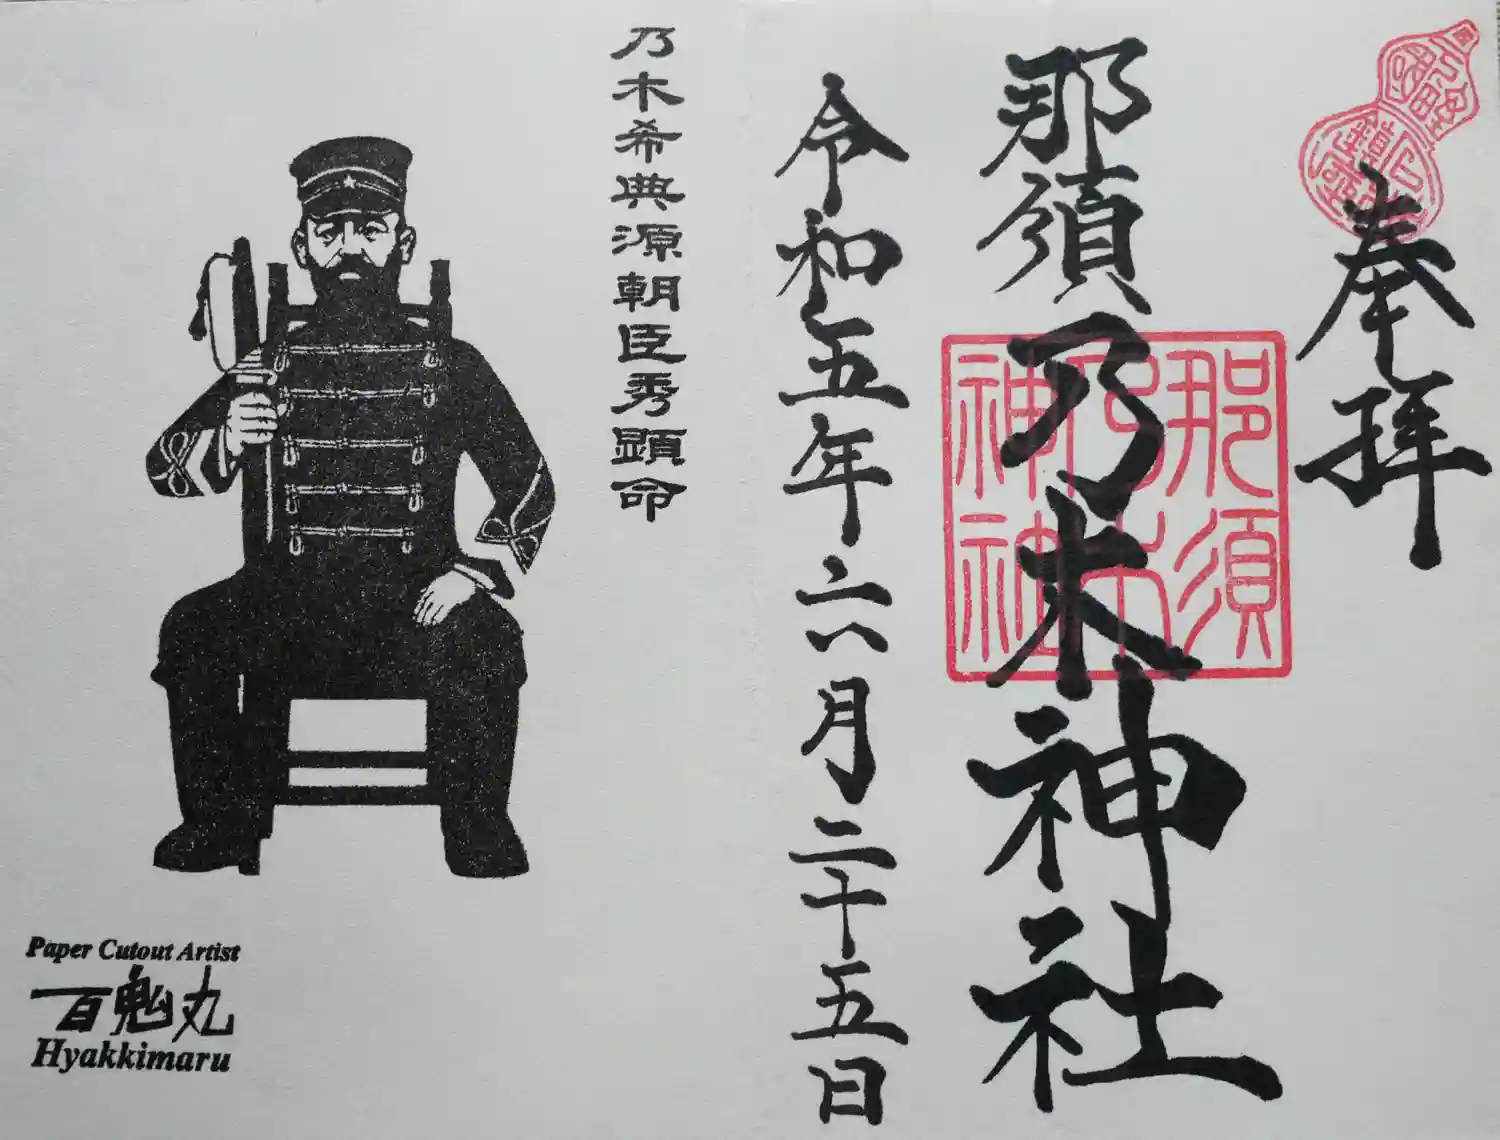 奉拝
那須乃木神社
令和五年六月二十五日
乃木希典源朝臣秀顕命
Paper Cutout Artist
百鬼丸
Hyakkimaru